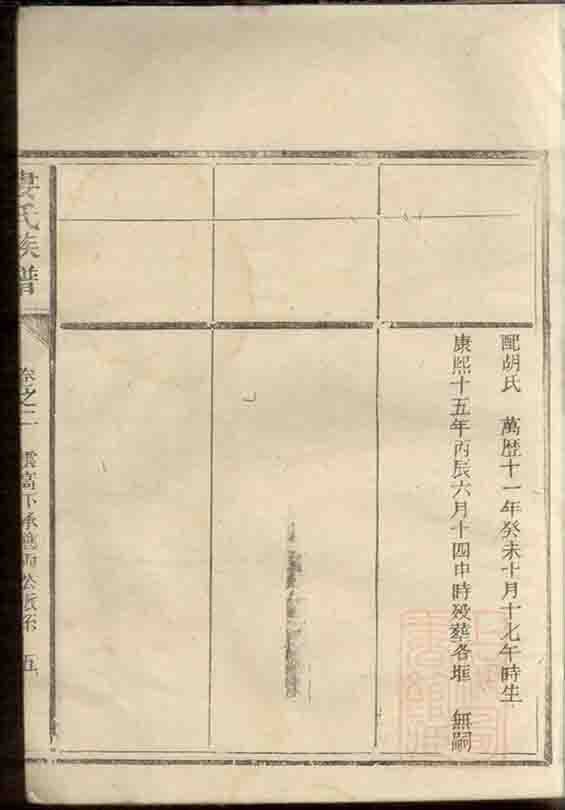 配胡氏 萬歷十一年癸未十月十七午時生
康熙十五年丙辰六月十四申時殁葬各堆 無嗣
氏族譜
卷之二 雲高下承 公派系 五